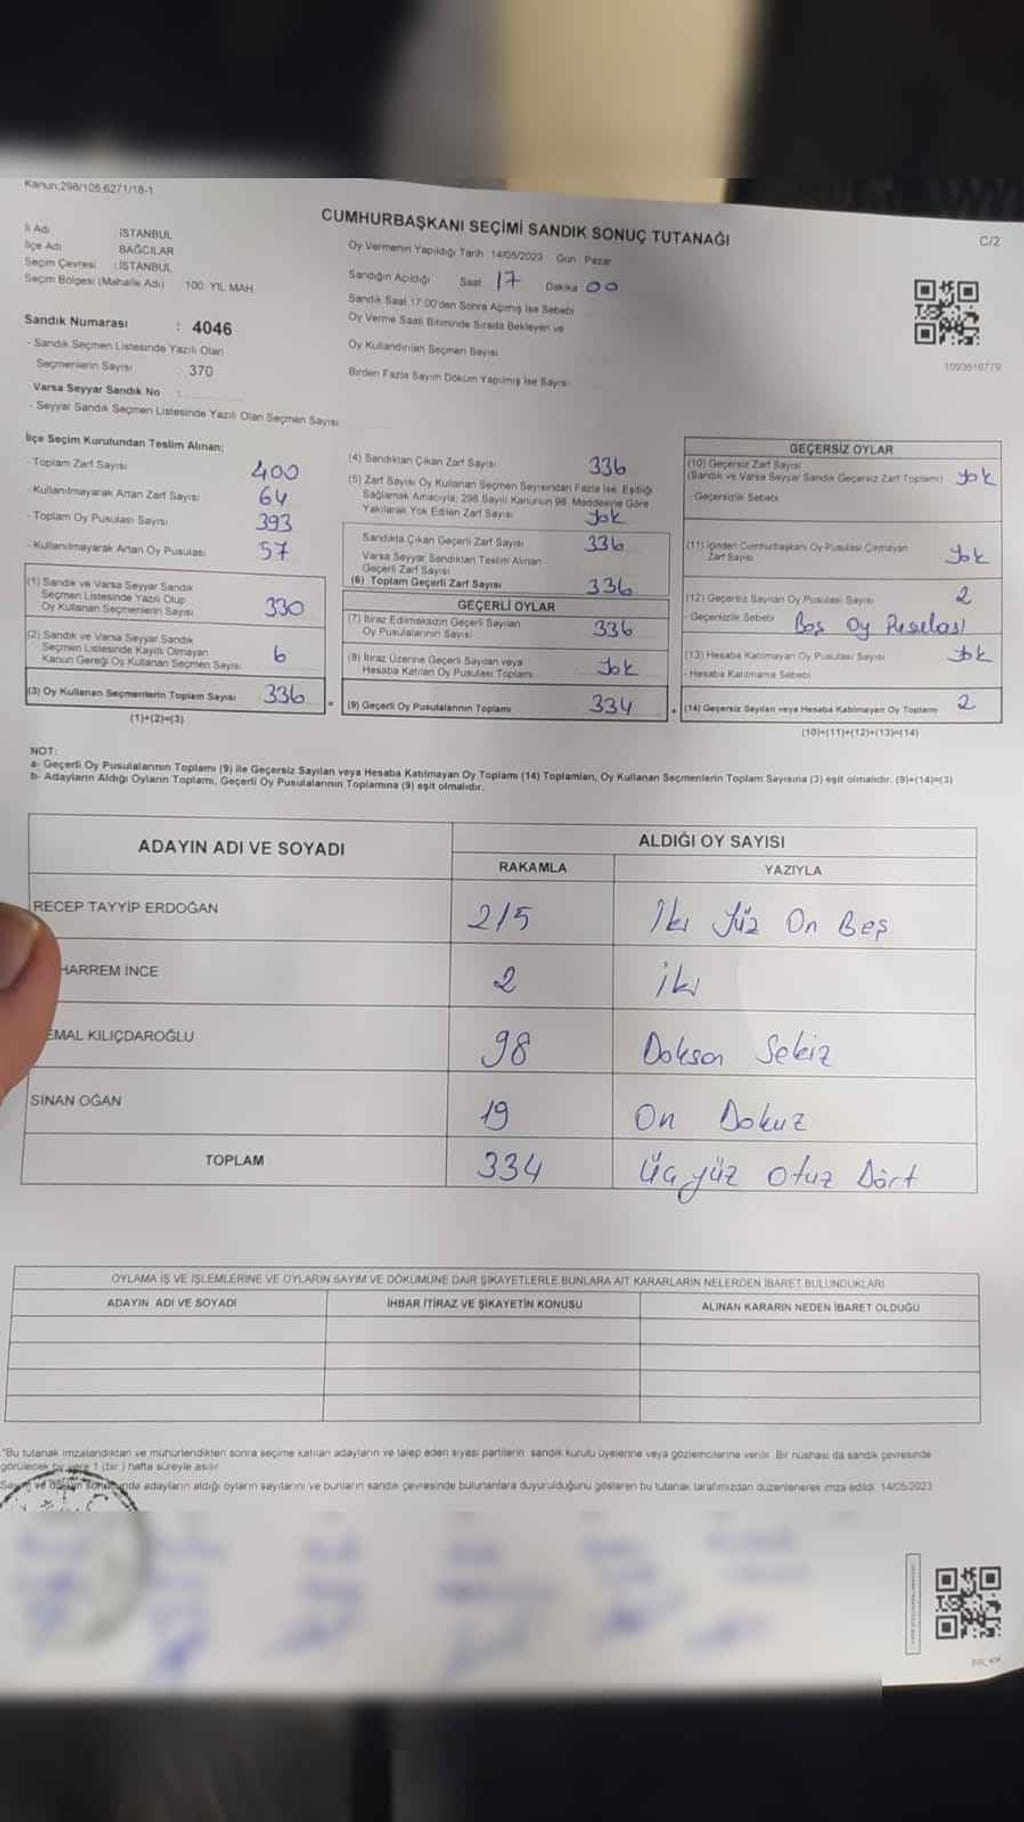 Kanun:298/105,6271/18-1
CUMHURBAŞKANI SEÇİMİ SANDIK SONUÇ TUTANAĞI
C/2
İl Adı İSTANBUL
İlçe Adı BAĞCILAR
Seçim Çevresi : İSTANBUL
Seçim Bölgesi (Mahalle Adı) 100. YIL MAH.
Sandık Numarası : 4046
- Sandık Seçmen Listesinde Yazılı Olan
Seçmenlerin Sayısı 370
Varsa Seyyar Sandık No :
- Seyyar Sandık Seçmen Listesinde Yazılı Olan Seçmen Sayısı
Oy Vermenin Yapıldığı Tarih 14/05/2023 Gün : Pazar
Sandığın Açıldığı Saat 17 Dakika 00
Sandık Saat 17:00'den Sonra Açılmış İse Sebebi
Oy Verme Saati Bitiminde Sırada Bekleyen ve
Oy Kullandırılan Seçmen Sayısı
Birden Fazla Sayım Döküm Yapılmış İse Sayısı
1093616779
İlçe Seçim Kurulundan Teslim Alınan:
- Toplam Zarf Sayısı 400
- Kullanılmayarak Artan Zarf Sayısı 64
- Toplam Oy Pusulası Sayısı 393
- Kullanılmayarak Artan Oy Pusulası 57
(1) Sandık ve Varsa Seyyar Sandık
Seçmen Listesinde Yazılı Olup
Oy Kullanan Seçmenlerin Sayısı 330
(2) Sandık ve Varsa Seyyar Sandık
Seçmen Listesinde Kayıtlı Olmayan
Kanun Gereği Oy Kullanan Seçmen Sayısı 6
(3) Oy Kullanan Seçmenlerin Toplam Sayısı 336
(1)+(2)=(3)
(4) Sandıktan Çıkan Zarf Sayısı 336
(5) Zarf Sayısı Oy Kullanan Seçmen Sayısından Fazla İse, Eşitliği
Sağlamak Amacıyla; 298 Sayılı Kanunun 98. Maddesine Göre
Yakılarak Yok Edilen Zarf Sayısı Yok
Sandıkta Çıkan Geçerli Zarf Sayısı 336
Varsa Seyyar Sandıktan Teslim Alınan
Geçerli Zarf Sayısı
(6) Toplam Geçerli Zarf Sayısı 336
GEÇERLİ OYLAR
(7) İtiraz Edilmeksizin Geçerli Sayılan
Oy Pusulalarının Sayısı 336
(8) İtiraz Üzerine Geçerli Sayılan veya
Hesaba Katılan Oy Pusulası Toplamı Yok
(9) Geçerli Oy Pusulalarının Toplamı 334
GEÇERSİZ OYLAR
(10) Geçersiz Zarf Sayısı
(Sandık ve Varsa Seyyar Sandık Geçersiz Zarf Toplamı) Yok
- Geçersizlik Sebebi
(11) İçinden Cumhurbaşkanı Oy Pusulası Çıkmayan
Zarf Sayısı Yok
(12) Geçersiz Sayılan Oy Pusulası Sayısı 2
- Geçersizlik Sebebi Boş Oy Pusulası
(13) Hesaba Katılmayan Oy Pusulası Sayısı Yok
- Hesaba Katılmama Sebebi
(14) Geçersiz Sayılan veya Hesaba Katılmayan Oy Toplamı 2
(10)+(11)+(12)+(13)=(14)
NOT:
a- Geçerli Oy Pusulalarının Toplamı (9) ile Geçersiz Sayılan veya Hesaba Katılmayan Oy Toplamı (14) Toplamları, Oy Kullanan Seçmenlerin Toplam Sayısına (3) eşit olmalıdır. (9)+(14)=(3)
b- Adayların Aldığı Oyların Toplamı, Geçerli Oy Pusulalarının Toplamına (9) eşit olmalıdır.
ADAYIN ADI VE SOYADI ALDIĞI OY SAYISI
RAKAMLA YAZIYLA
RECEP TAYYİP ERDOĞAN 215 İki Yüz On Beş
HARREM İNCE 2 İki
EMAL KILIÇDAROĞLU 98 Doksan Sekiz
SİNAN OĞAN 19 On Dokuz
TOPLAM 334 Üçyüz Otuz Dört
OYLAMA İŞ VE İŞLEMLERİNE VE OYLARIN SAYIM VE DÖKÜMÜNE DAİR ŞİKAYETLERLE BUNLARA AİT KARARLARIN NELERDEN İBARET BULUNDUKLARI
ADAYIN ADI VE SOYADI İHBAR İTİRAZ VE ŞİKAYETİN KONUSU ALINAN KARARIN NEDEN İBARET OLDUĞU
"Bu tutanak imzalandıktan ve mühürlendikten sonra seçime katılan adayların ve talep eden siyasi partilerin sandık kurulu üyelerine veya gözlemcilerine verilir. Bir nüshası da sandık çevresinde
görülecek bir yere 1 (bir) hafta süreyle asılır.
adayların aldığı oyların sayılarını ve bunların sandık çevresinde bulunanlara duyurulduğunu gösteren bu tutanak tarafımızdan düzenlenerek imza edildi. 14/05/2023